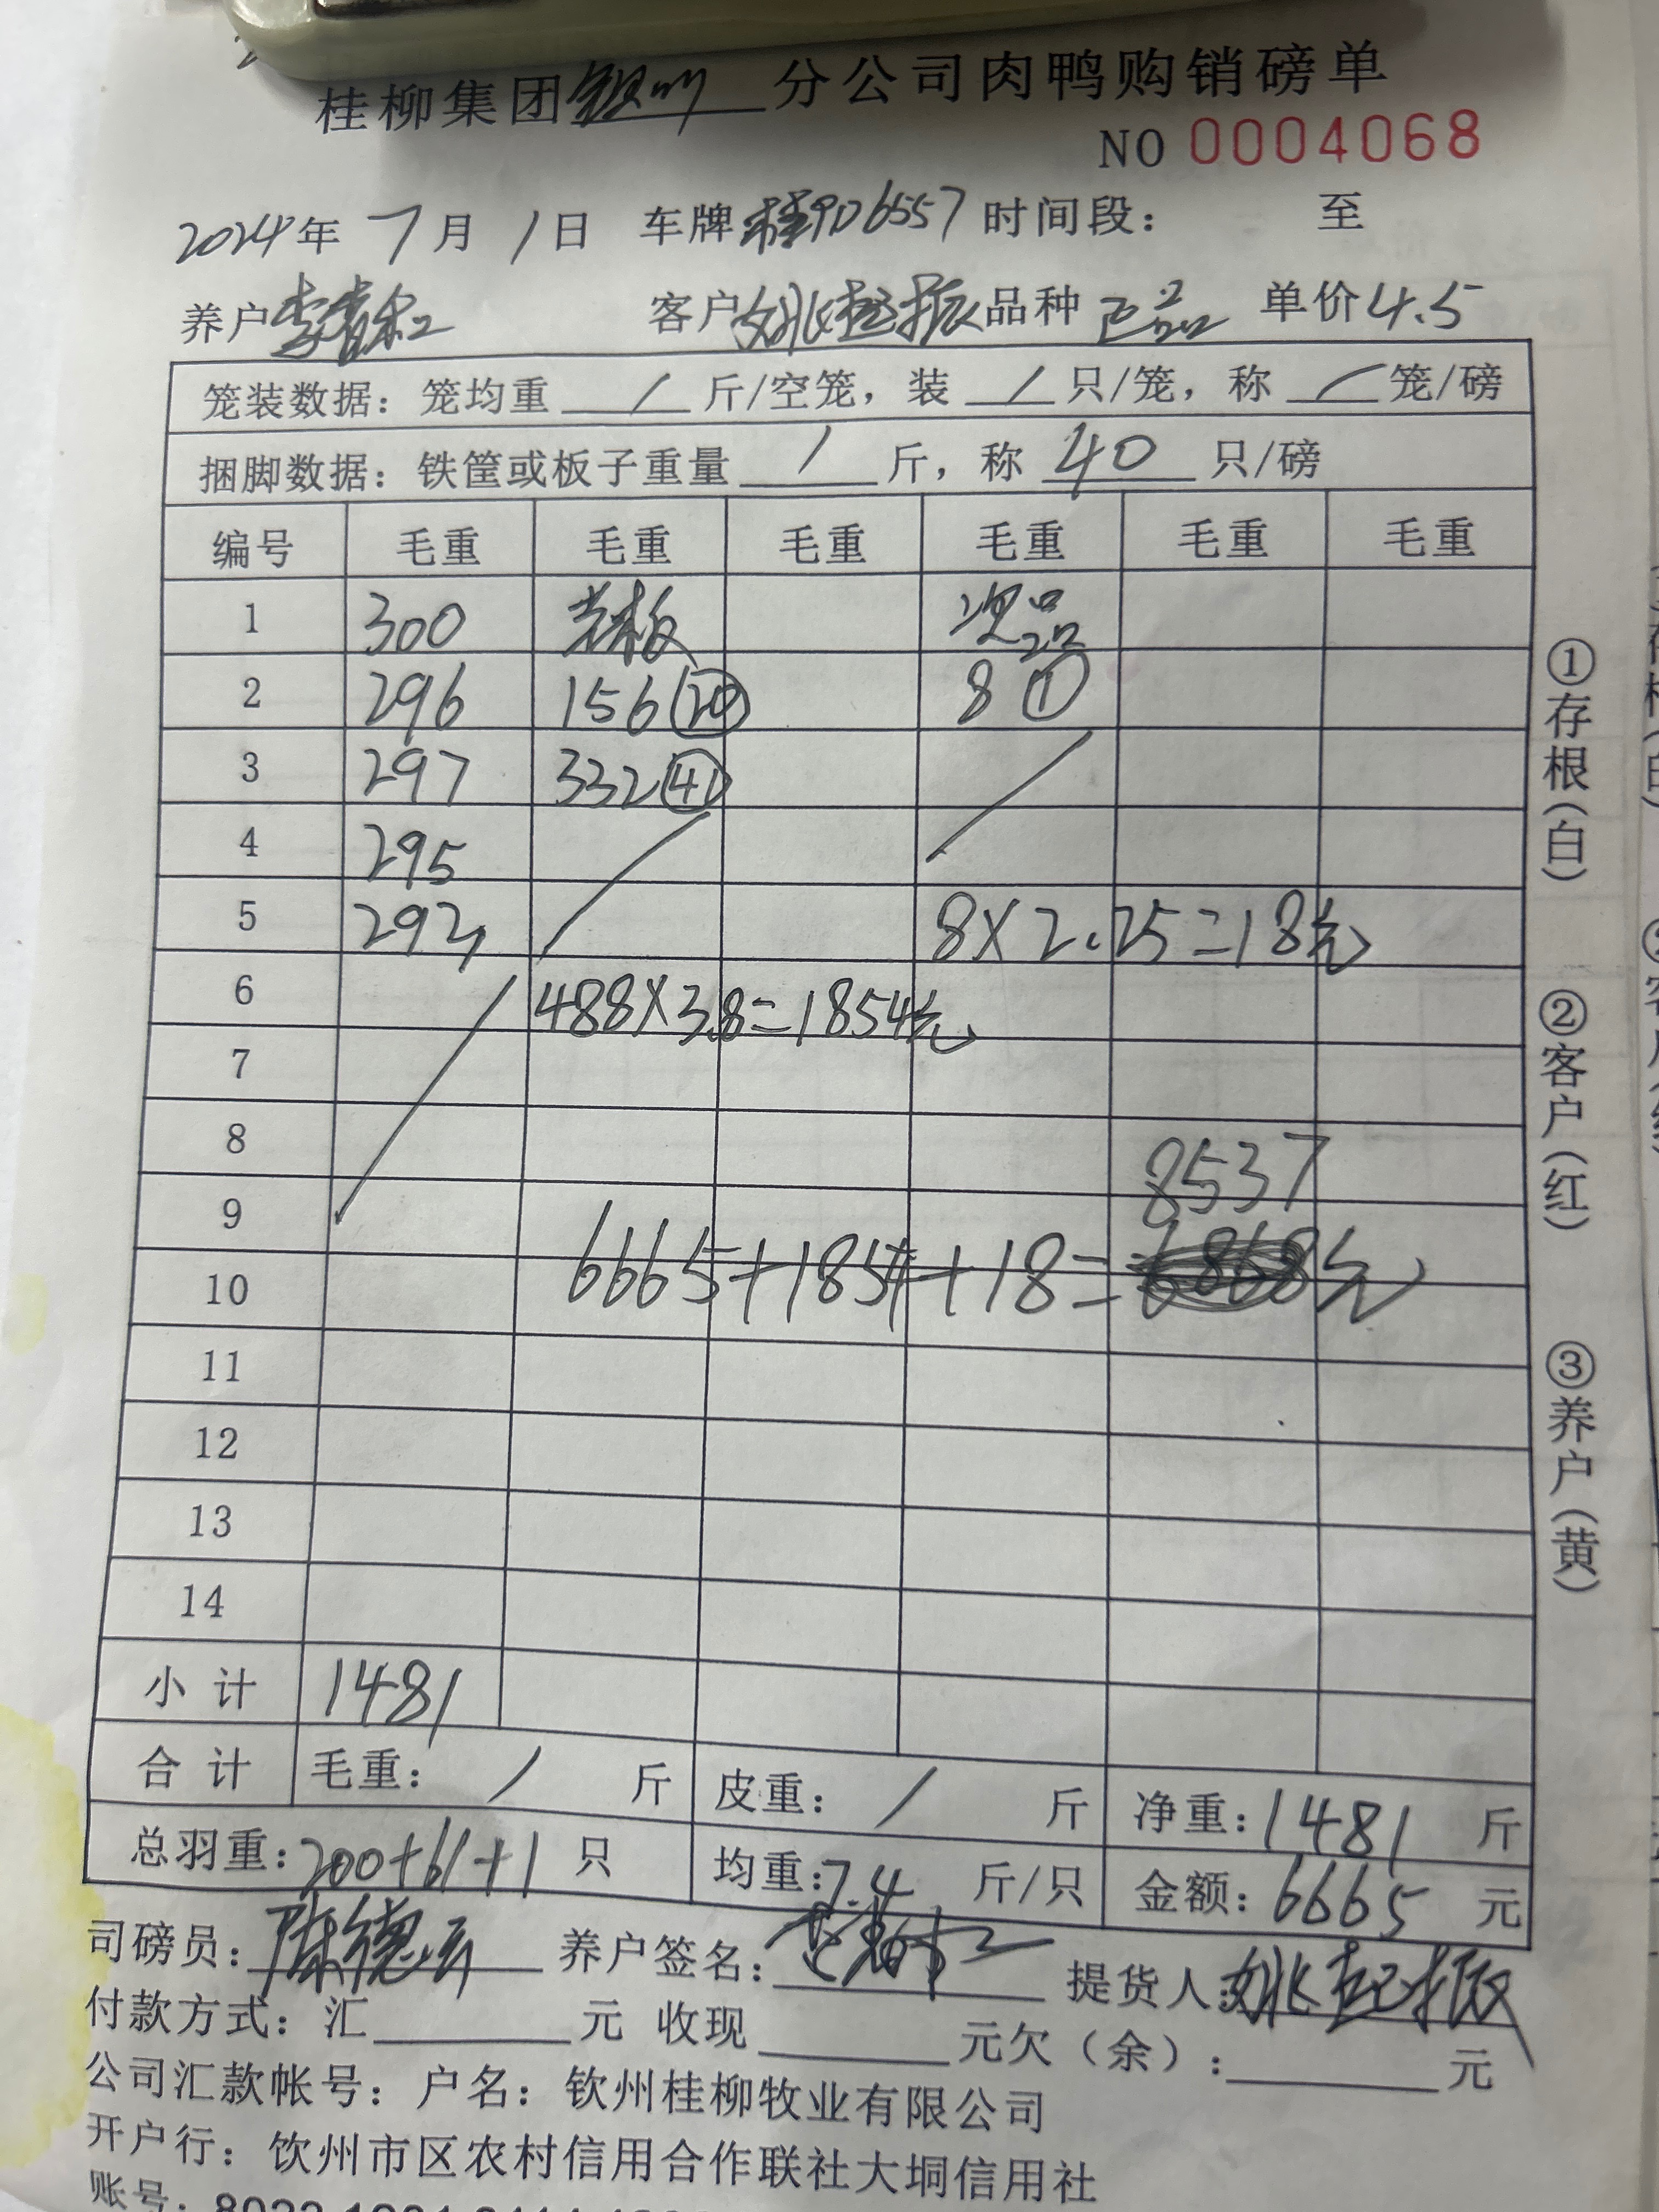 桂柳集团钦州分公司肉鸭购销磅单
NO 0004068
2024年 7月 1日 车牌桂9D6557 时间段： 至
养户李 客户姚起振 品种 正品 单价4.5
笼装数据：笼均重 / 斤/空笼，装 / 只/笼，称 / 笼/磅
捆脚数据：铁筐或板子重量 / 斤，称 40 只/磅
编号 毛重 毛重 毛重 毛重 毛重 毛重
1 300 次品
2 296 156 ⑳ 8 ①
3 297 332 ㊶
4 295
5 292 8×2.25=18元
6 488×3.8=1854元
7
8 8537
9
10 6665+1854+18= 元
11
12
13
14
小计 1481
合计 毛重： / 斤 皮重： / 斤 净重：1481 斤
总羽重：200+61+1 只 均重：7.4 斤/只 金额：6665 元
司磅员：陈德云 养户签名：李 提货人：姚起振
付款方式：汇 元 收现 元欠（余）： 元
公司汇款帐号：户名：钦州桂柳牧业有限公司
开户行：饮州市区农村信用合作联社大垌信用社
账号：
①存根(白)
②客户(红)
③养户(黄)